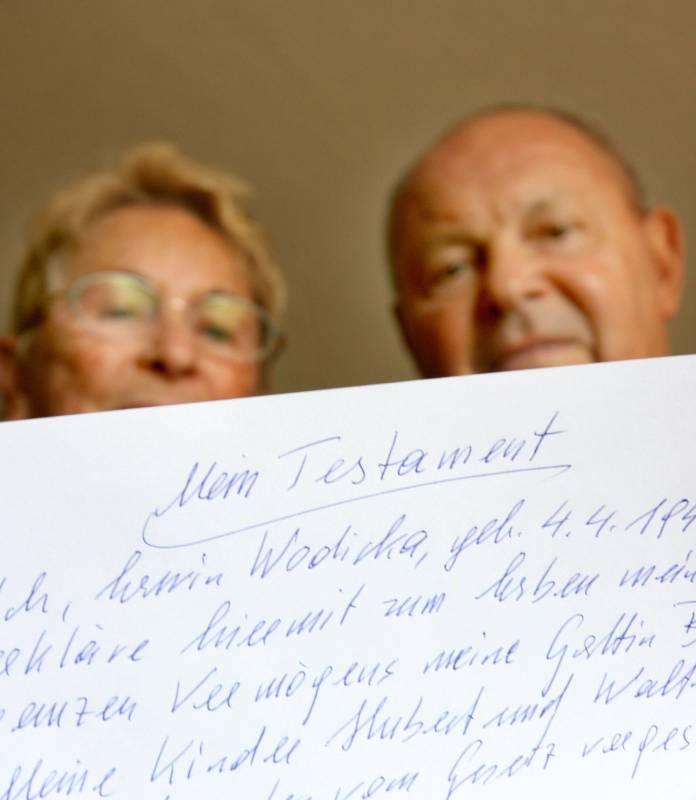 Mein Testament
Ich, Erwin Wodicka, geb. 4. 4. 194
erkläre hiermit zum Erben mein
ganzen Vermögens meine Gattin
Meine Kinder Hubert und Walt
vom Gesetz vorges